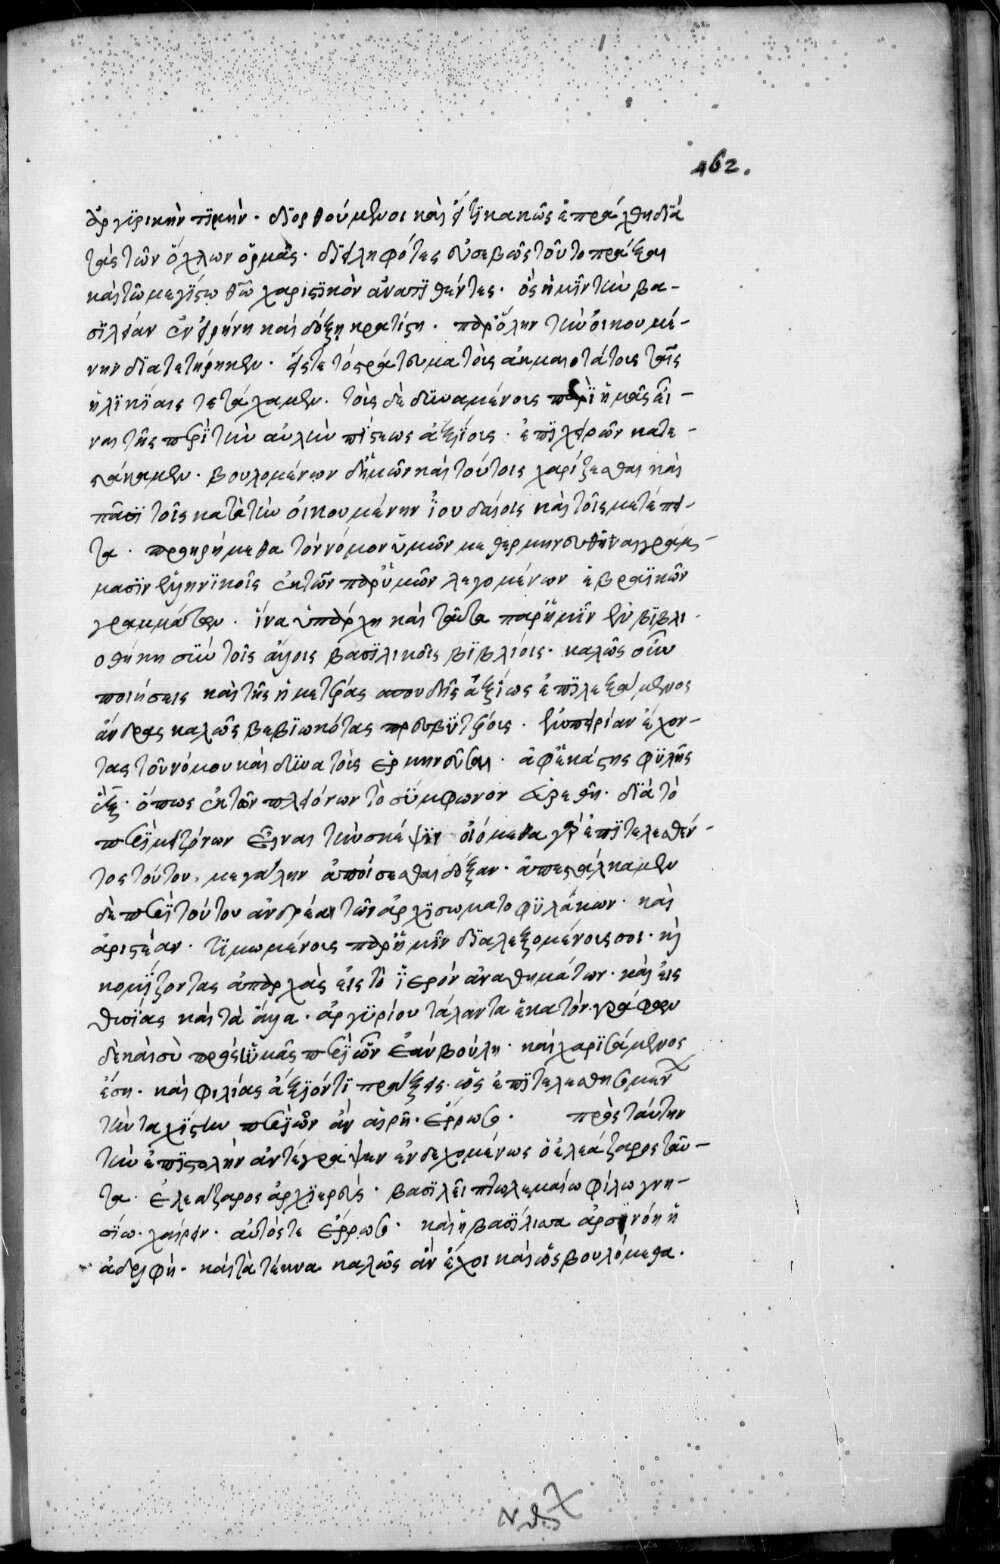 462.
ἀργυρικὴν τιμήν· διορθούμενοι καὶ εἴ τι κακῶς ἐπράχθη διὰ
τὰς τῶν ὄχλων ὁρμάς· διειληφότες εὐσεβῶς τοῦτο πράξαι
καὶ τῶ μεγίστω θεῶ χαριστικὸν ἀνατιθέντες· ὃς ἡμῖν τὴν βα-
σιλείαν ἐν εἰρήνη καὶ δόξη κρατίστη· παρ' ὅλην τὴν οἰκουμέ-
νην διατετήρηκεν· εἴς τε τὸ στράτευμα τοὺς ἀκμαιοτάτους ταῖς
ἡλικίαις τετάχαμεν· τοὺς δὲ δυναμένους περὶ ἡμᾶς εἶ-
ναι τῆς περὶ τὴν αὐλὴν πίστεως ἀξίους· ἐπὶ χρειῶν κατε-
στάκαμεν· βουλομένων δ' ἡμῶν καὶ τούτοις χαρίζεσθαι καὶ
πᾶσι τοῖς κατὰ τὴν οἰκουμένην ἰουδαίοις καὶ τοῖς μετέπει-
τα· προηρήμεθα τὸν νόμον ὑμῶν μεθερμηνευθῆναι γράμ-
μασιν ἑλληνικοῖς ἐκ τῶν παρ' ὑμῶν λεγομένων ἑβραϊκῶν
γραμμάτων· ἵνα ὑπάρχη καὶ ταῦτα παρ' ἡμῖν ἐν βιβλι-
οθήκη σὺν τοῖς ἄλλοις βασιλικοῖς βιβλίοις· καλῶς οὖν
ποιήσεις καὶ τῆς ἡμετέρας σπουδῆς ἀξίως ἐπιλεξάμενος
ἄνδρας καλῶς βεβιωκότας πρεσβυτέρους· ἐμπειρίαν ἔχον-
τας τοῦ νόμου καὶ δυνατοὺς ἑρμηνεῦσαι· ἀφ' ἑκάστης φυλῆς
ἕξ· ὅπως ἐκ τῶν πλειόνων τὸ σύμφωνον εὑρεθῆ· διὰ τὸ
περὶ μειζόνων εἶναι τὴν σκέψιν οἰόμεθα γὰρ ἐπιτελεσθέν-
τος τούτου· μεγάλην ἀποίσεσθαι δόξαν· ἀπεστάλκαμεν
δὲ περὶ τούτου ἀνδρέαν τῶν ἀρχισωματοφυλάκων· καὶ
ἀριστέαν· τιμωμένους παρ' ἡμῖν διαλεξομένους σοι· καὶ
κομίζοντας ἀπαρχὰς εἰς τὸ ἱερὸν ἀναθημάτων· καὶ εἰς
θυσίας καὶ τὰ ἄλλα· ἀργυρίου τάλαντα ἑκατόν· γράφων
δὲ καὶ σὺ πρὸς ἡμᾶς περὶ ὧν ἐὰν βούλη· κεχαρισμένος
ἔση· καὶ φιλίας ἄξιόν τι πράξεις· ὡς ἐπιτελεσθησομένων
τὴν ταχίστην περὶ ὧν ἂν αἱρῆ· ἔρρωσο· πρὸς ταύτην
τὴν ἐπιστολὴν ἀντέγραψεν ἐνδεχομένως ὁ ἐλεάζαρος ταῦ-
τα· ἐλεάζαρος ἀρχιερεύς· βασιλεῖ πτολεμαίω φίλω γνη-
σίω· χαίρειν· αὐτός τε ἔρρωσο· καὶ ἡ βασίλισσα ἀρσινόη ἡ
ἀδελφή· καὶ τὰ τέκνα καλῶς ἂν ἔχοι καὶ ὡς βουλόμεθα·